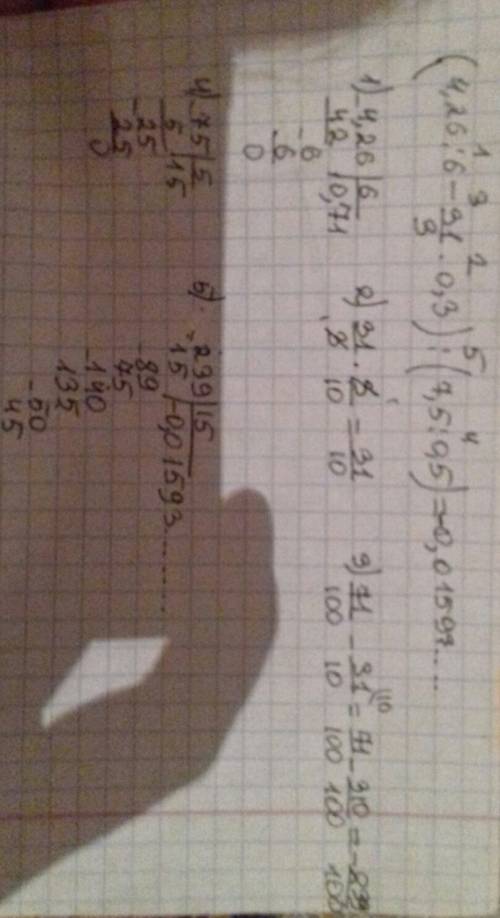 (4,26 : 6 - 31/3 · 0,3) : (7,5 : 0,5) = -0,01593....
1) 4,26 | 6
42 | 0,71
- 6
6
0
2) 31/3 · 3/10 = 31/10
3) 71/100 - 31/10 = 71/100 - 310/100 = - 239/100
4) 75 | 5
5 | 15
-25
25
0
5) - 239 | 15
15 | -0,01593........
-89
75
-140
135
-50
45